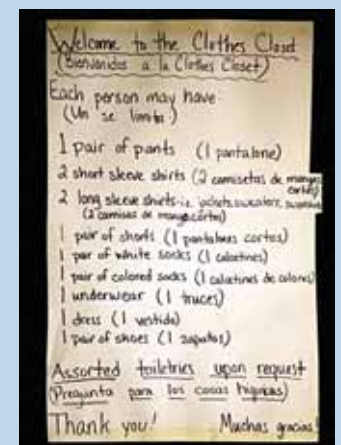 Welcome to the Clothes Closet
(Bienvenidos a la Clothes Closet)
Each person may have
(Un se limita)
1 pair of pants (1 pantalone)
2 short sleeve shirts (2 camisetas de manga
cortas)
2 long sleeve shirts-i.e. jackets, sweaters,
(2 camisas de manga cortos)
1 pair of shorts (1 pantalones cortos)
1 pair of white socks (1 calcetines)
1 pair of colored socks (1 calcetines de colores)
1 underwear (1 truces)
1 dress (1 vestido)
1 pair of shoes (1 zapatos)
Assorted toiletries upon request
(Pregunta para los cosas)
Thank you! Muchas gracias!